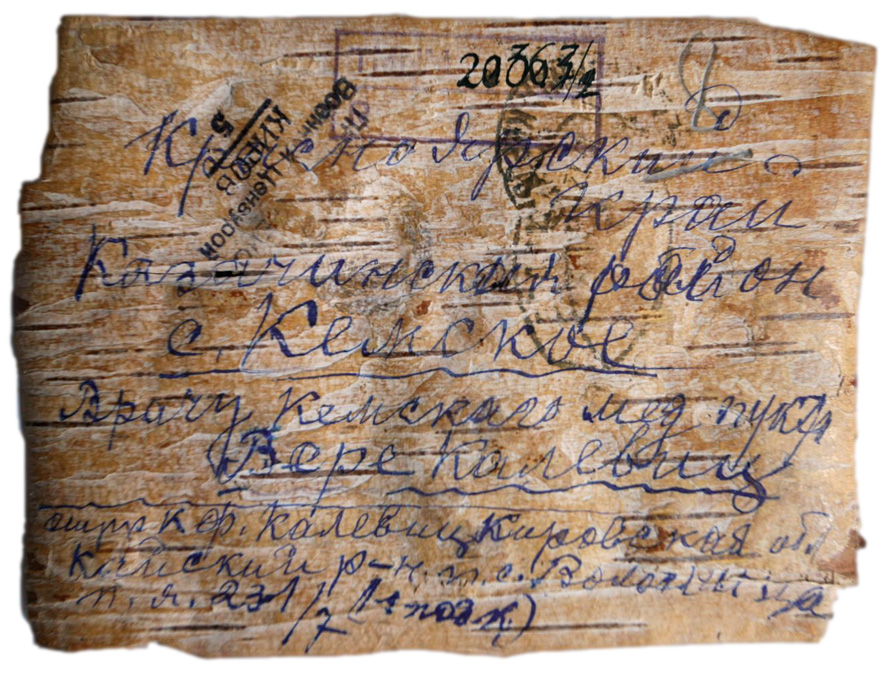 20363/2
Красноярский
край
Казачинский район
с. Кемское
Врачу Кемскаго мед пукта
Вере Калевиц
К Ф. Калевиц Кировская обл
Кайский р-н, п. о. Волосница
п. я. 231/7
Военной Цензурой
КИРОВ
5